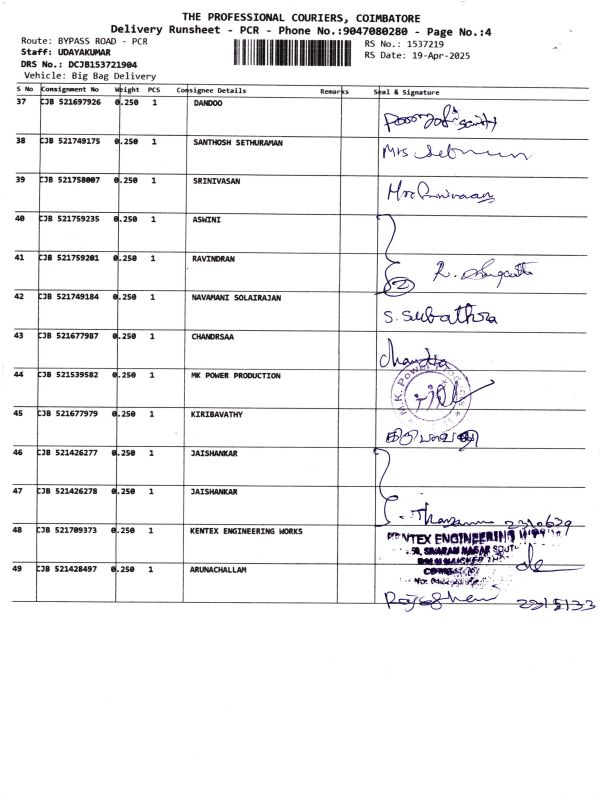 THE PROFESSIONAL COURIERS, COIMBATORE
Delivery Runsheet - PCR - Phone No.:9047080280 - Page No.:4
Route: BYPASS ROAD - PCR
RS No.: 1537219
Staff: UDAYAKUMAR
RS Date: 19-Apr-2025
DRS No.: DCJB153721904
Vehicle: Big Bag Delivery
S No Consignment No Weight PCS Consignee Details Remarks Seal & Signature
37 CJB 521697926 0.250 1 DANDOO
38 CJB 521749175 0.250 1 SANTHOSH SETHURAMAN
Mrs.
39 CJB 521758007 0.250 1 SRINIVASAN
40 CJB 521759235 0.250 1 ASWINI
41 CJB 521759201 0.250 1 RAVINDRAN
2 R.
42 CJB 521749184 0.250 1 NAVAMANI SOLAIRAJAN
S. Subathra
43 CJB 521677987 0.250 1 CHANDRSAA
Chandra
44 CJB 521539582 0.250 1 MK POWER PRODUCTION
M.K. Power
45 CJB 521677979 0.250 1 KIRIBAVATHY
46 CJB 521426277 0.250 1 JAISHANKAR
47 CJB 521426278 0.250 1 JAISHANKAR
48 CJB 521709373 0.250 1 KENTEX ENGINEERING WORKS
KENTEX ENGINEERING
SIVARAM NAGAR SOUTH
49 CJB 521428497 0.250 1 ARUNACHALLAM